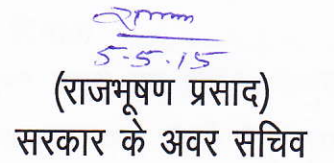 5.5.15
(राजभूषण प्रसाद)
सरकार के अवर सचिव